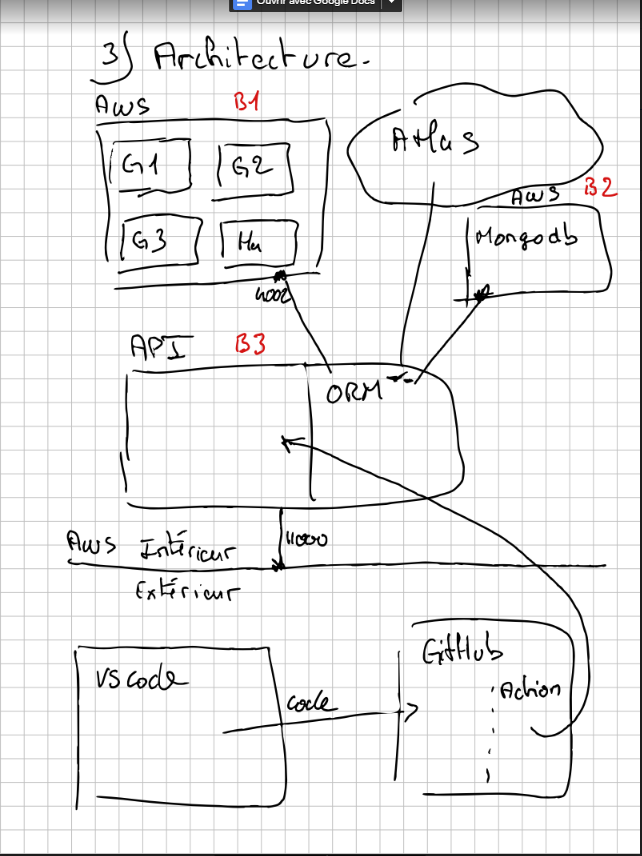 Ouvrir avec Google Docs
3) Architecture.
AWS B1
G1 G2
G3
4002
Atlas
AWS B2
Mongodb
API B3
ORM
AWS Intérieur 4000
Extérieur
VScode
code
GitHub
Action